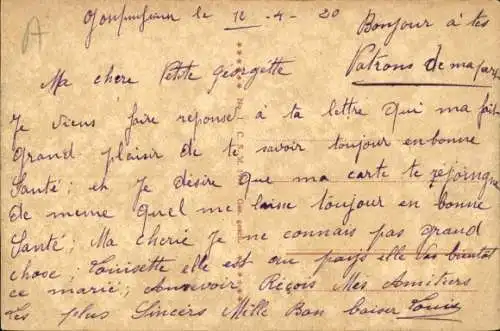 le 12 - 4 - 20
Bonjour à tes
Patrons de ma part
Ma chère Petite Georgette
Je viens faire reponse à ta lettre qui ma fait
Grand plaisir de te savoir toujour en bonne
Santé; et Je désire que ma carte te rejoingne
de meme quel me laise toujour en bonne
Santé; Ma cherie Je ne connais pas grand
chose; Louisette elle est au pays elle vas bientot
ce marié; Aurevoir Reçois Mes Amitiers
les plus Sincers Mille Bon baiser Louis